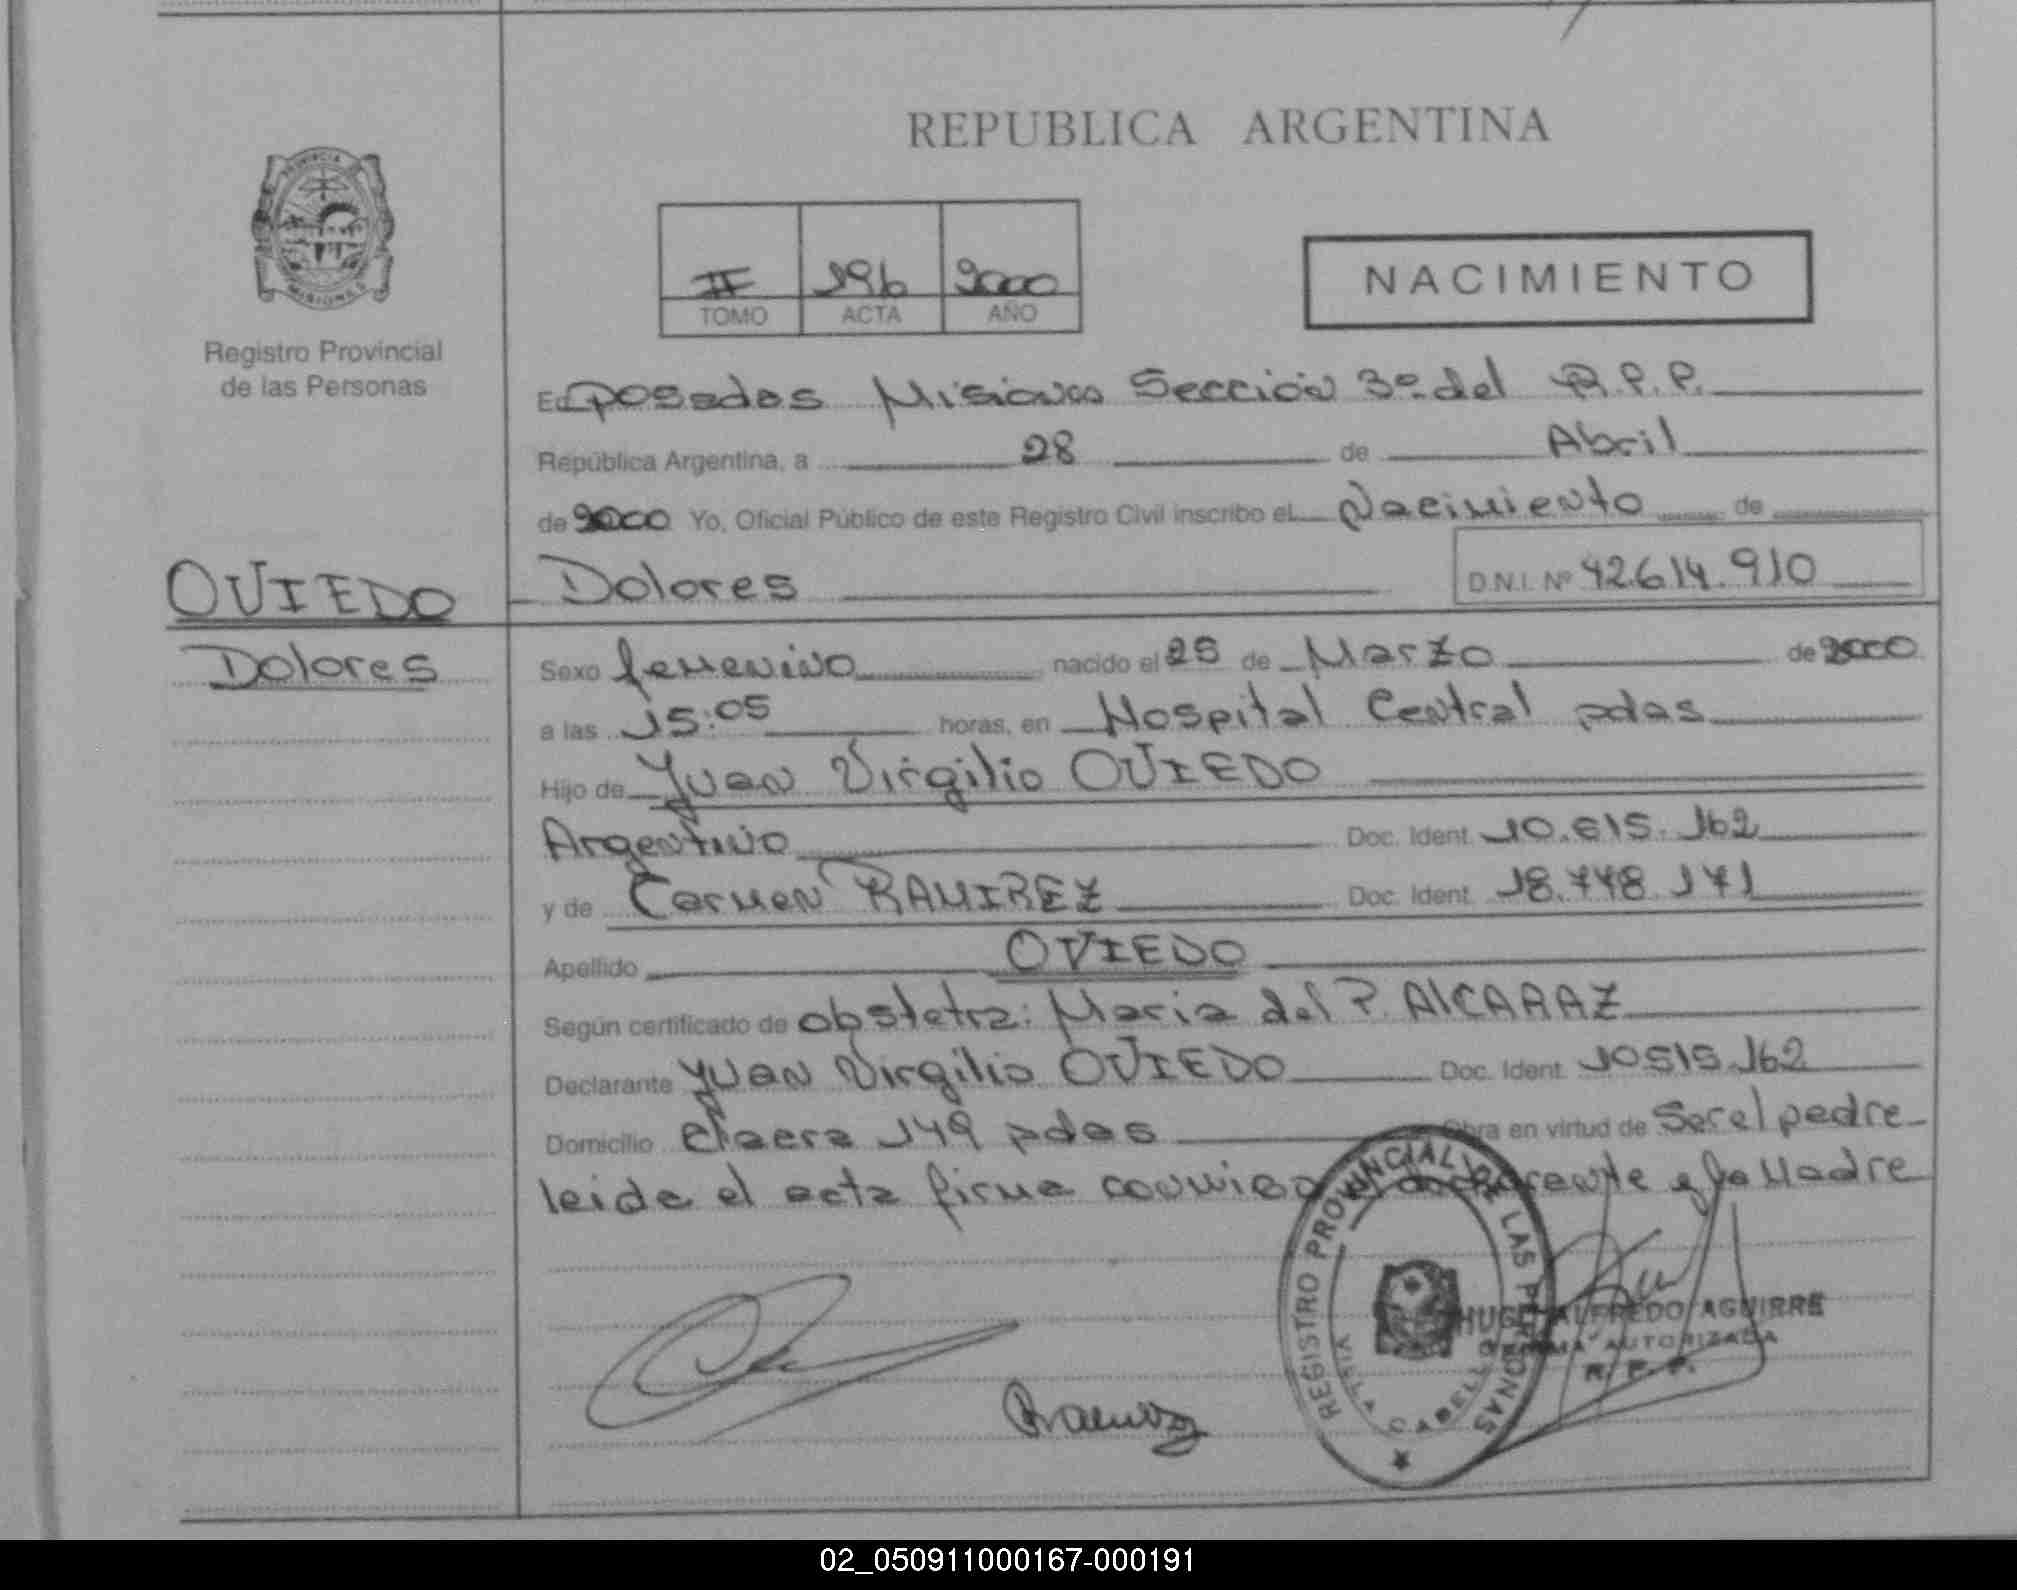 REPUBLICA ARGENTINA
PROVINCIA
MISIONES
Registro Provincial
de las Personas
II 196 2000
TOMO ACTA AÑO
NACIMIENTO
En posadas Misiones Sección 3º del R.P.P.
República Argentina, a 28 de Abril
de 2000 Yo, Oficial Público de este Registro Civil inscribo el Nacimiento de
OVIEDO
Dolores
Dolores D.N.I. Nº 42.614.910
Sexo femenino nacido el 25 de Marzo de 2000
a las 15:05 horas, en Hospital Central pdas
Hijo de Juan Virgilio OVIEDO
Argentino Doc. Ident. 10.615.162
y de Carmen RAMIREZ Doc. Ident. 18.778.171
Apellido OVIEDO
Según certificado de obstetra: Maria del P. AlCARAZ
Declarante Juan Virgilio OVIEDO Doc. Ident. 10515.162
Domicilio 149 pdas Obra en virtud de Ser el padre
leida el acta firma conmigo el declarante y la Madre
REGISTRO PROVINCIAL DE LAS PERSONAS
VILLA CABELLO
HUGO ALFREDO AGUIRRE
FIRMA AUTORIZADA
R. P. P.
Ramirez
02_050911000167-000191